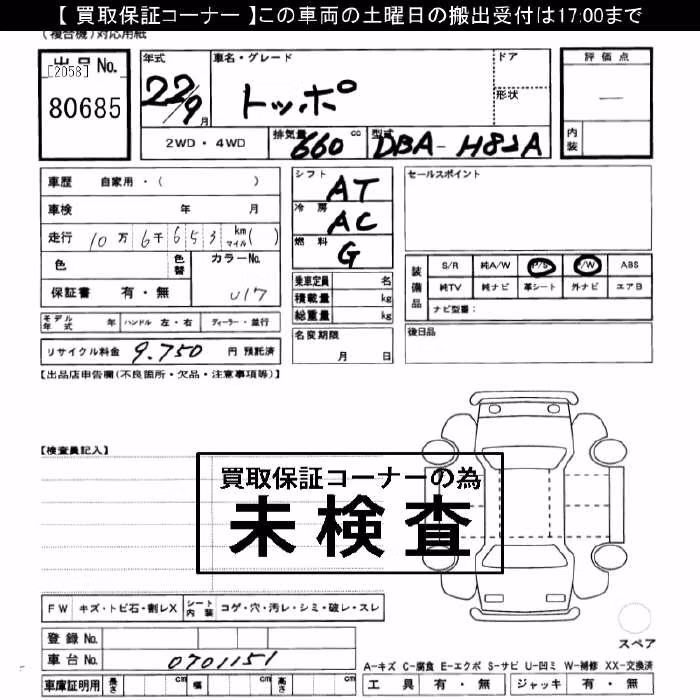 【 買取保証コーナー 】この車両の土曜日の搬出受付は17:00まで
(複合機)対応用紙
出品No.
[2058]
80685
年式
22/9
月
車名・グレード
トッポ
ドア
形状
評価点
—
内装
2WD・4WD
排気量
660
cc
型式
DBA-H82A
車歴 自家用・( )
車検 年 月
走行 10万6千653 km マイル( )
色 色替 カラーNo.
保証書 有・無 U17
シフト AT
冷房 AC
燃料 G
乗車定員 名
積載量 kg
総重量 kg
名変期限
月 日
セールスポイント
装備品
S/R 純A/W P/S P/W ABS
純TV 純ナビ 革シート 外ナビ エアB
ナビ型番:
後日品
モデル年式 年 ハンドル 左・右 ディーラー・並行
リサイクル料金 9.750 円 預託済
【出品店申告欄(不良箇所・欠品・注意事項等)】
【検査員記入】
買取保証コーナーの為
未検査
FW キズ・トビ石・割レX シート内装 コゲ・穴・汚レ・シミ・破レ・スレ
登録No.
車台No. 0701151
車庫証明用 長さ cm 幅 cm 高さ cm
スペア
A-キズ C-腐食 E-エクボ S-サビ U-凹ミ W-補修 XX-交換済
工具 有・無 ジャッキ 有・無